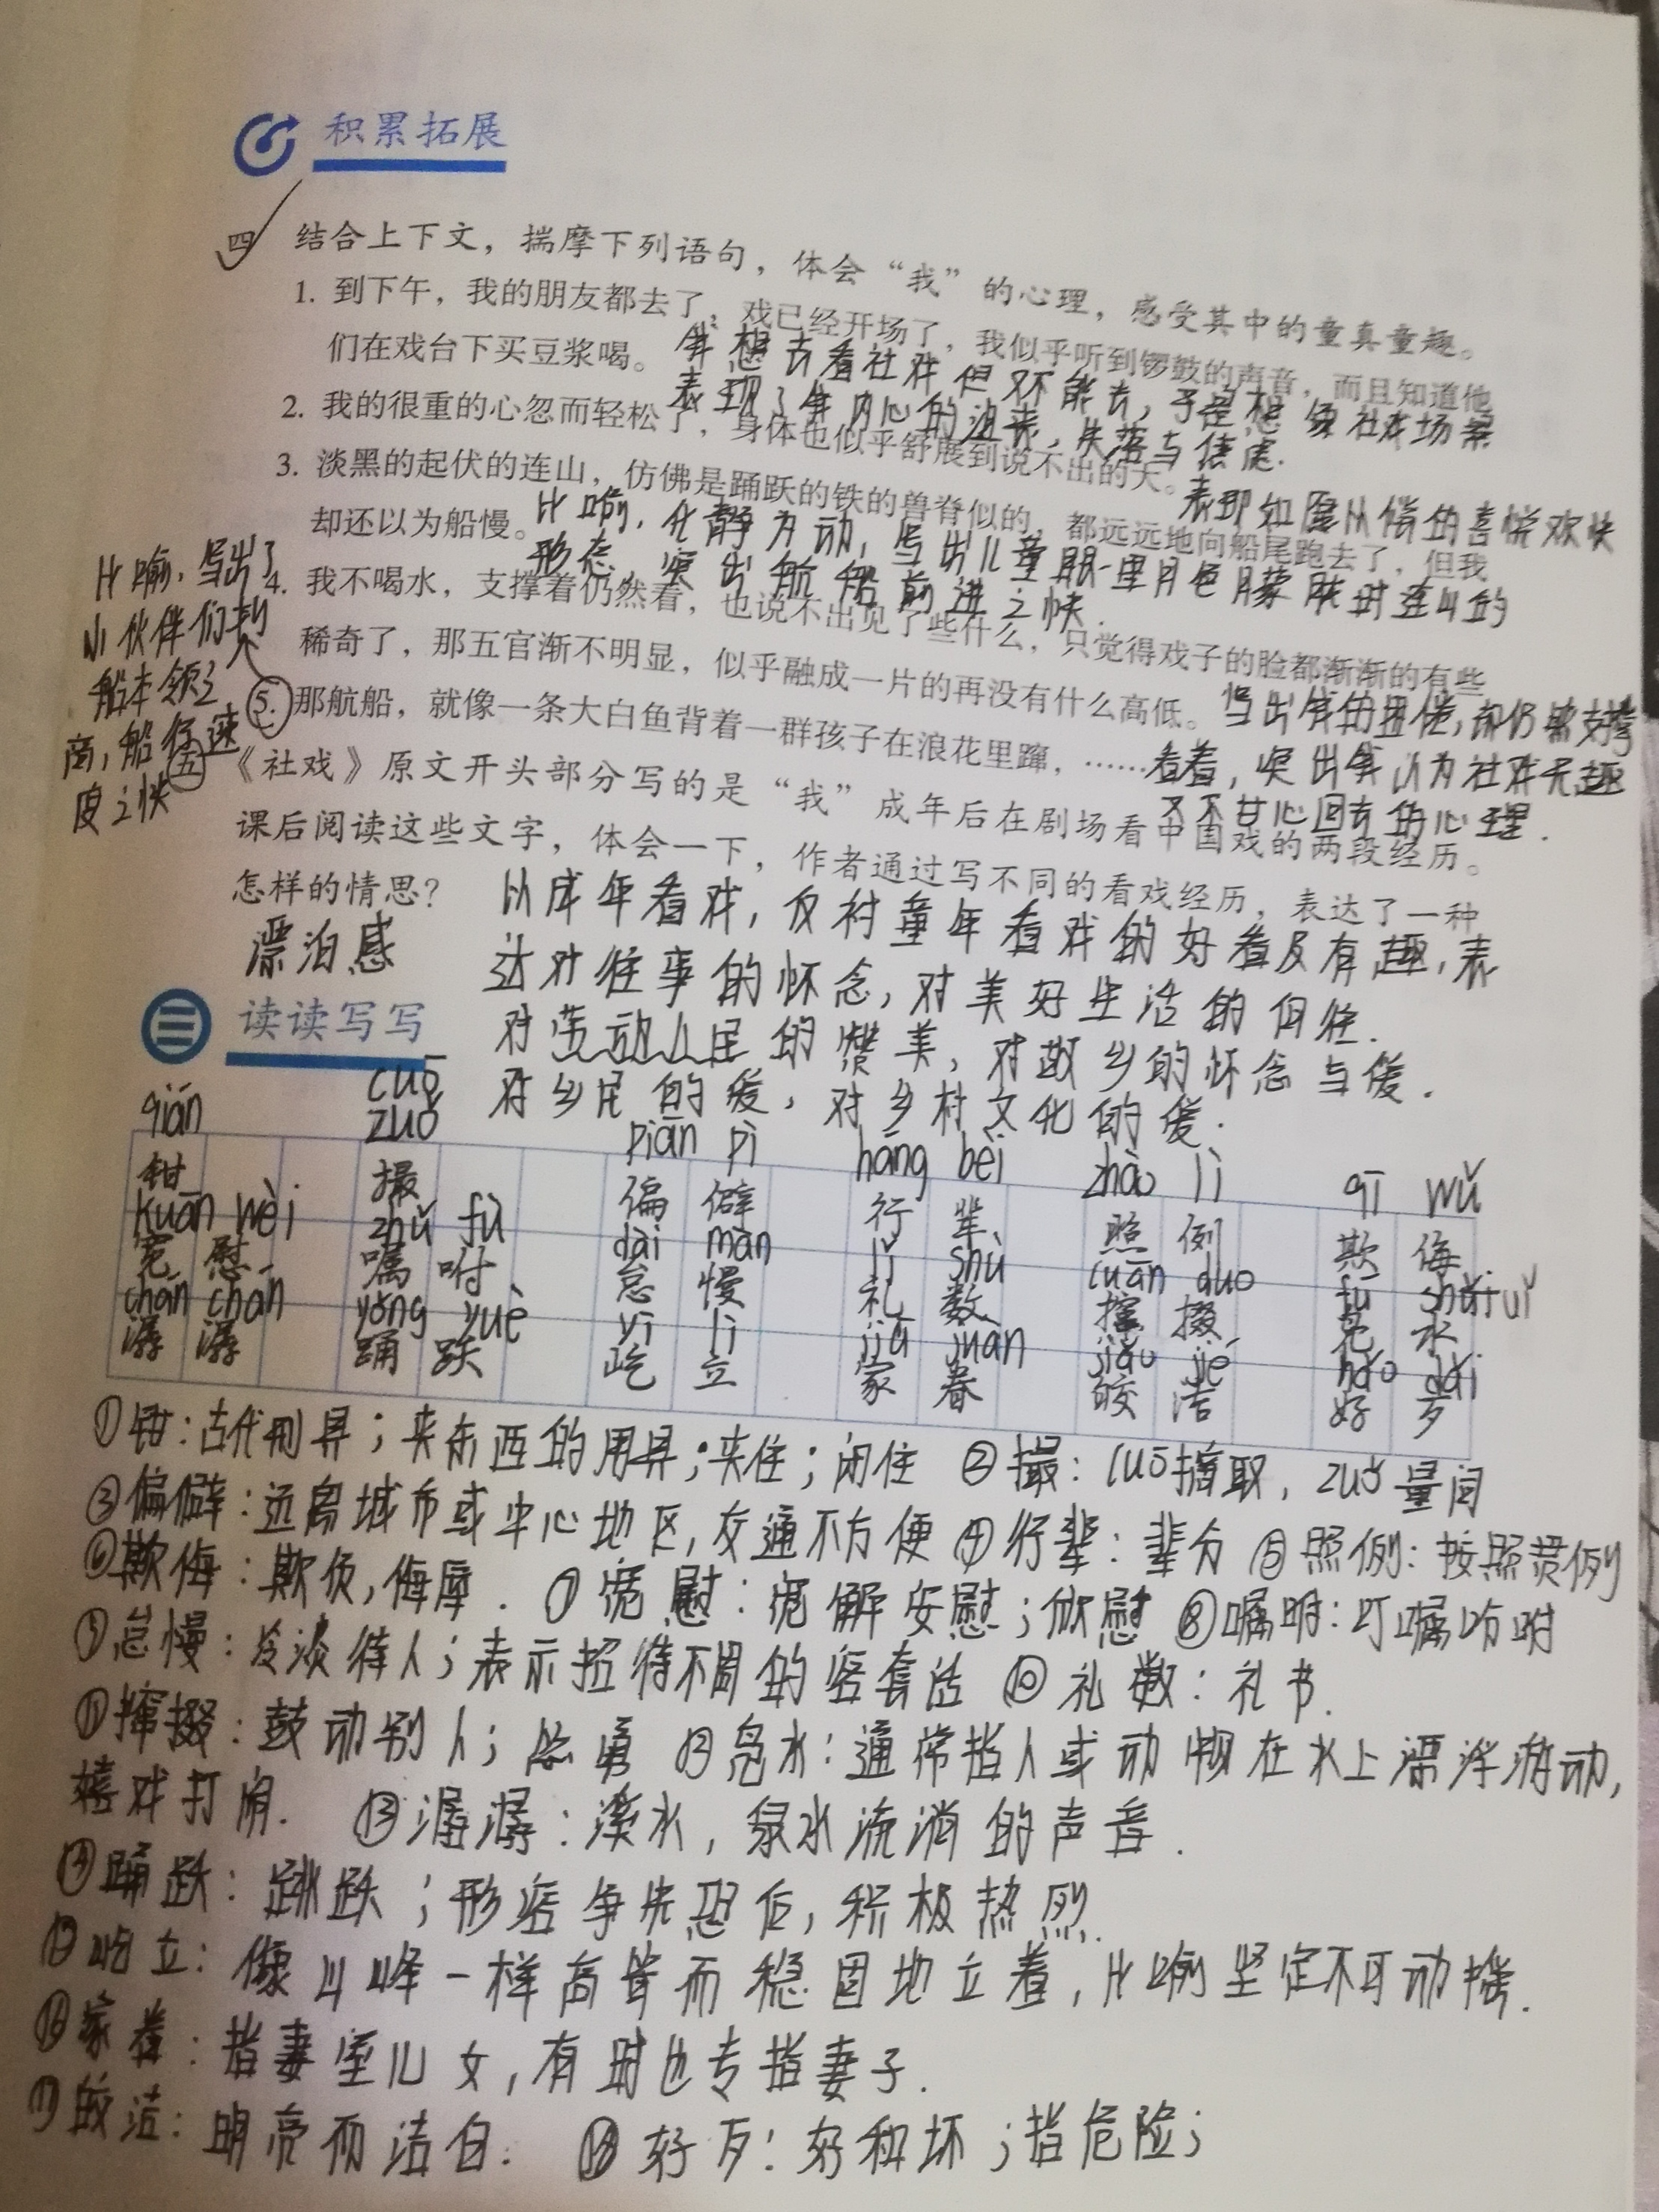 积累拓展
四 结合上下文，揣摩下列语句，体会“我”的心理，感受其中的童真童趣。
1. 到下午，我的朋友都去了，戏已经开场了，我似乎听到锣鼓的声音，而且知道他
们在戏台下买豆浆喝。 想去看社戏但又不能去，于是想 社戏场景
表现了 内心的 ，失落与焦虑.
2. 我的很重的心忽而轻松了，身体也似乎舒展到说不出的大。 表现 的喜悦欢快
3. 淡黑的起伏的连山，仿佛是踊跃的铁的兽脊似的，都远远地向船尾跑去了，但我
却还以为船慢。 比喻，化静为动，写出儿童眼里月色朦胧时连山的
形态，突出航船前进之快.
4. 我不喝水，支撑着仍然看，也说不出见了些什么，只觉得戏子的脸都渐渐的有些
稀奇了，那五官渐不明显，似乎融成一片的再没有什么高低。 写出 的困倦，却仍然支撑
看着，突出 认为社戏无趣
又不甘心回去的心理.
5. 那航船，就像一条大白鱼背着一群孩子在浪花里蹿，……
比喻，写出了
小伙伴们
船本领之
高，船 速
度之快
五 《社戏》原文开头部分写的是“我”成年后在剧场看中国戏的两段经历。
课后阅读这些文字，体会一下，作者通过写不同的看戏经历，表达了一种
怎样的情思？ 以成年看戏，反衬童年看戏的好看及有趣，表
漂泊感 达对往事的怀念，对美好生活的向往.
对劳动人民的赞美，对故乡的怀念与爱.
对乡民的爱，对乡村文化的爱.
读读写写
qián cuō
zuǒ piān pì háng bèi zhào lì qī wǔ
钳 撮 偏僻 行辈 照例 欺侮
kuān wèi zhǔ fù dài màn lǐ shù cuān duo fú shuǐ
宽慰 嘱咐 怠慢 礼数 撺掇 凫水
chán chán yǒng yuè yì lì jiā juàn jiǎo jié hǎo dǎi
潺潺 踊跃 屹立 家眷 皎洁 好歹
①钳：古代刑具；夹东西的用具；夹住；闭住 ②撮：cuō摘取，zuǒ量词
③偏僻：远离城市或中心地区，交通不方便 ④行辈：辈分 ⑤照例：按照惯例
⑥欺侮：欺负，侮辱. ⑦宽慰：宽解安慰；欣慰 ⑧嘱咐：叮嘱吩咐
⑨怠慢：冷淡待人；表示招待不周的客套话 ⑩礼数：礼节.
⑪撺掇：鼓动别人；怂勇 ⑫凫水：通常指人或动物在水上漂浮游动，
嬉戏打闹. ⑬潺潺：溪水，泉水流淌的声音.
⑭踊跃：跳跃；形容争先恐后，积极热烈.
⑮屹立：像山峰一样高耸而稳固地立着，比喻坚定不可动摇.
⑯家眷：指妻室儿女，有时也专指妻子.
⑰皎洁：明亮而洁白. ⑱好歹：好和坏；指危险；